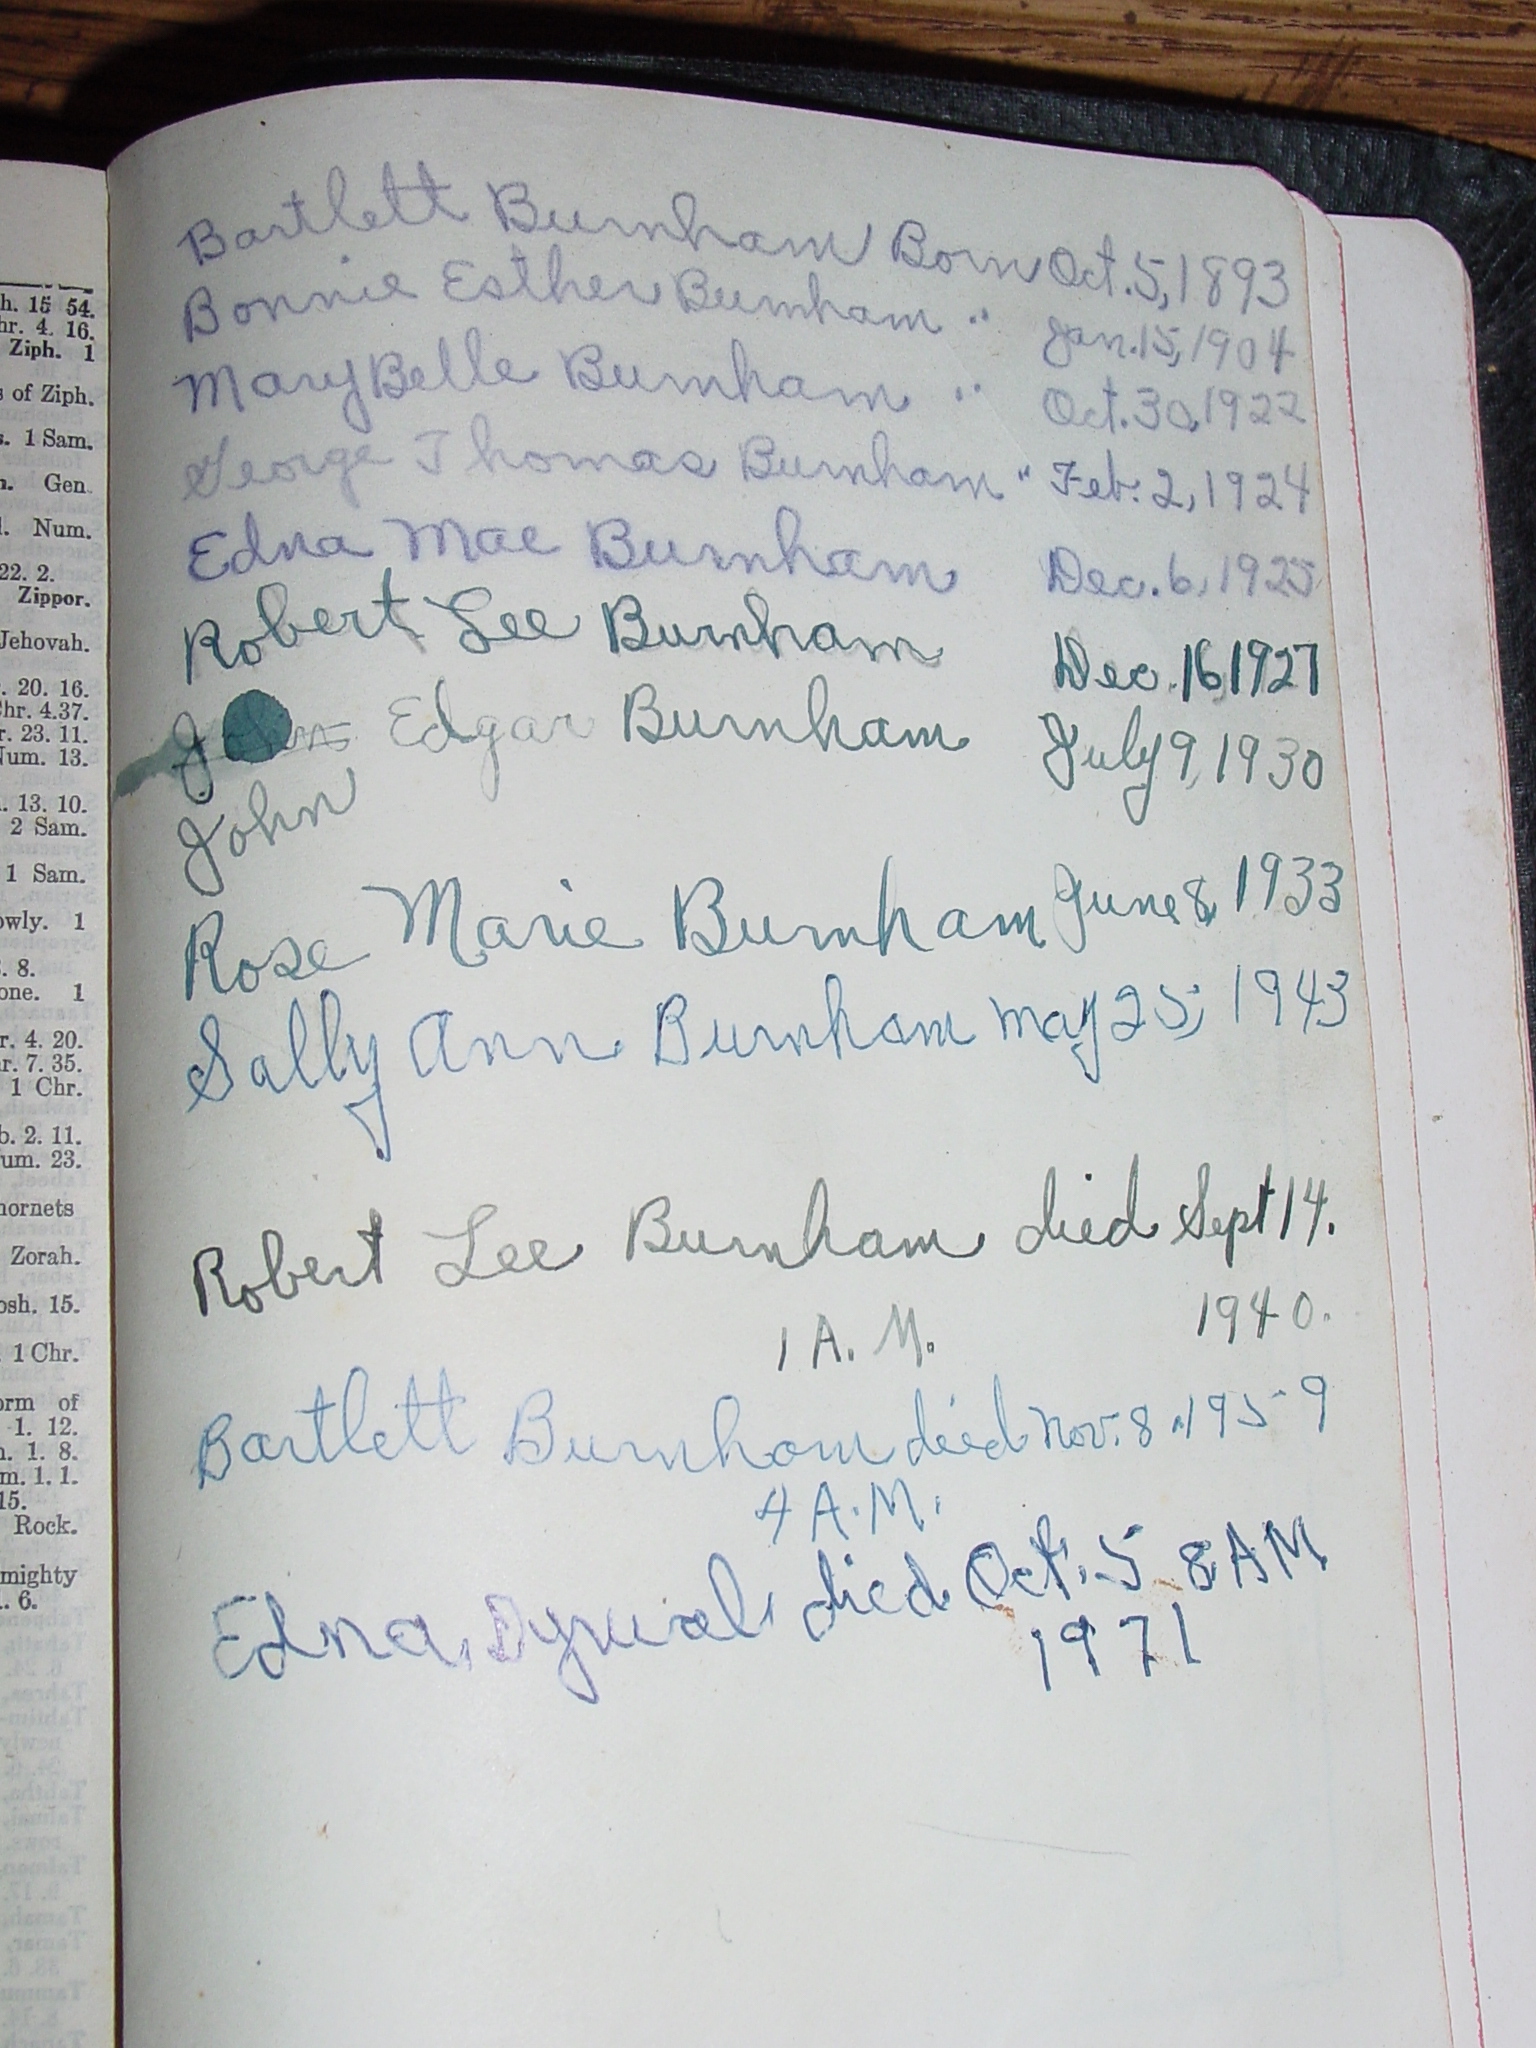 h. 15 54.
hr. 4. 16.
Ziph. 1
s of Ziph.
s. 1 Sam.
n. Gen.
l. Num.
22. 2.
Zippor.
Jehovah.
r. 20. 16.
Chr. 4.37.
r. 23. 11.
Num. 13.
. 13. 10.
2 Sam.
1 Sam.
owly. 1
. 8.
one. 1
r. 4. 20.
ar. 7. 35.
1 Chr.
b. 2. 11.
um. 23.
hornets
Zorah.
osh. 15.
1 Chr.
orm of
1. 12.
h. 1. 8.
m. 1. 1.
15.
Rock.
mighty
. 6.
Bartlett Burnham Born Oct. 5, 1893
Bonnie Esther Burnham " Jan. 15, 1904
Mary Belle Burnham " Oct. 30, 1922
George Thomas Burnham " Feb. 2, 1924
Edna Mae Burnham Dec. 6, 1925
Robert Lee Burnham Dec. 16 1927
John Edgar Burnham July 9, 1930
John
Rose Marie Burnham June 8, 1933
Sally Ann Burnham May 25, 1943
Robert Lee Burnham died Sept 14.
1 A. M. 1940.
Bartlett Burnham died Nov. 8, 1959
4 A.M.
Edna died Oct. 5 8 AM
1971